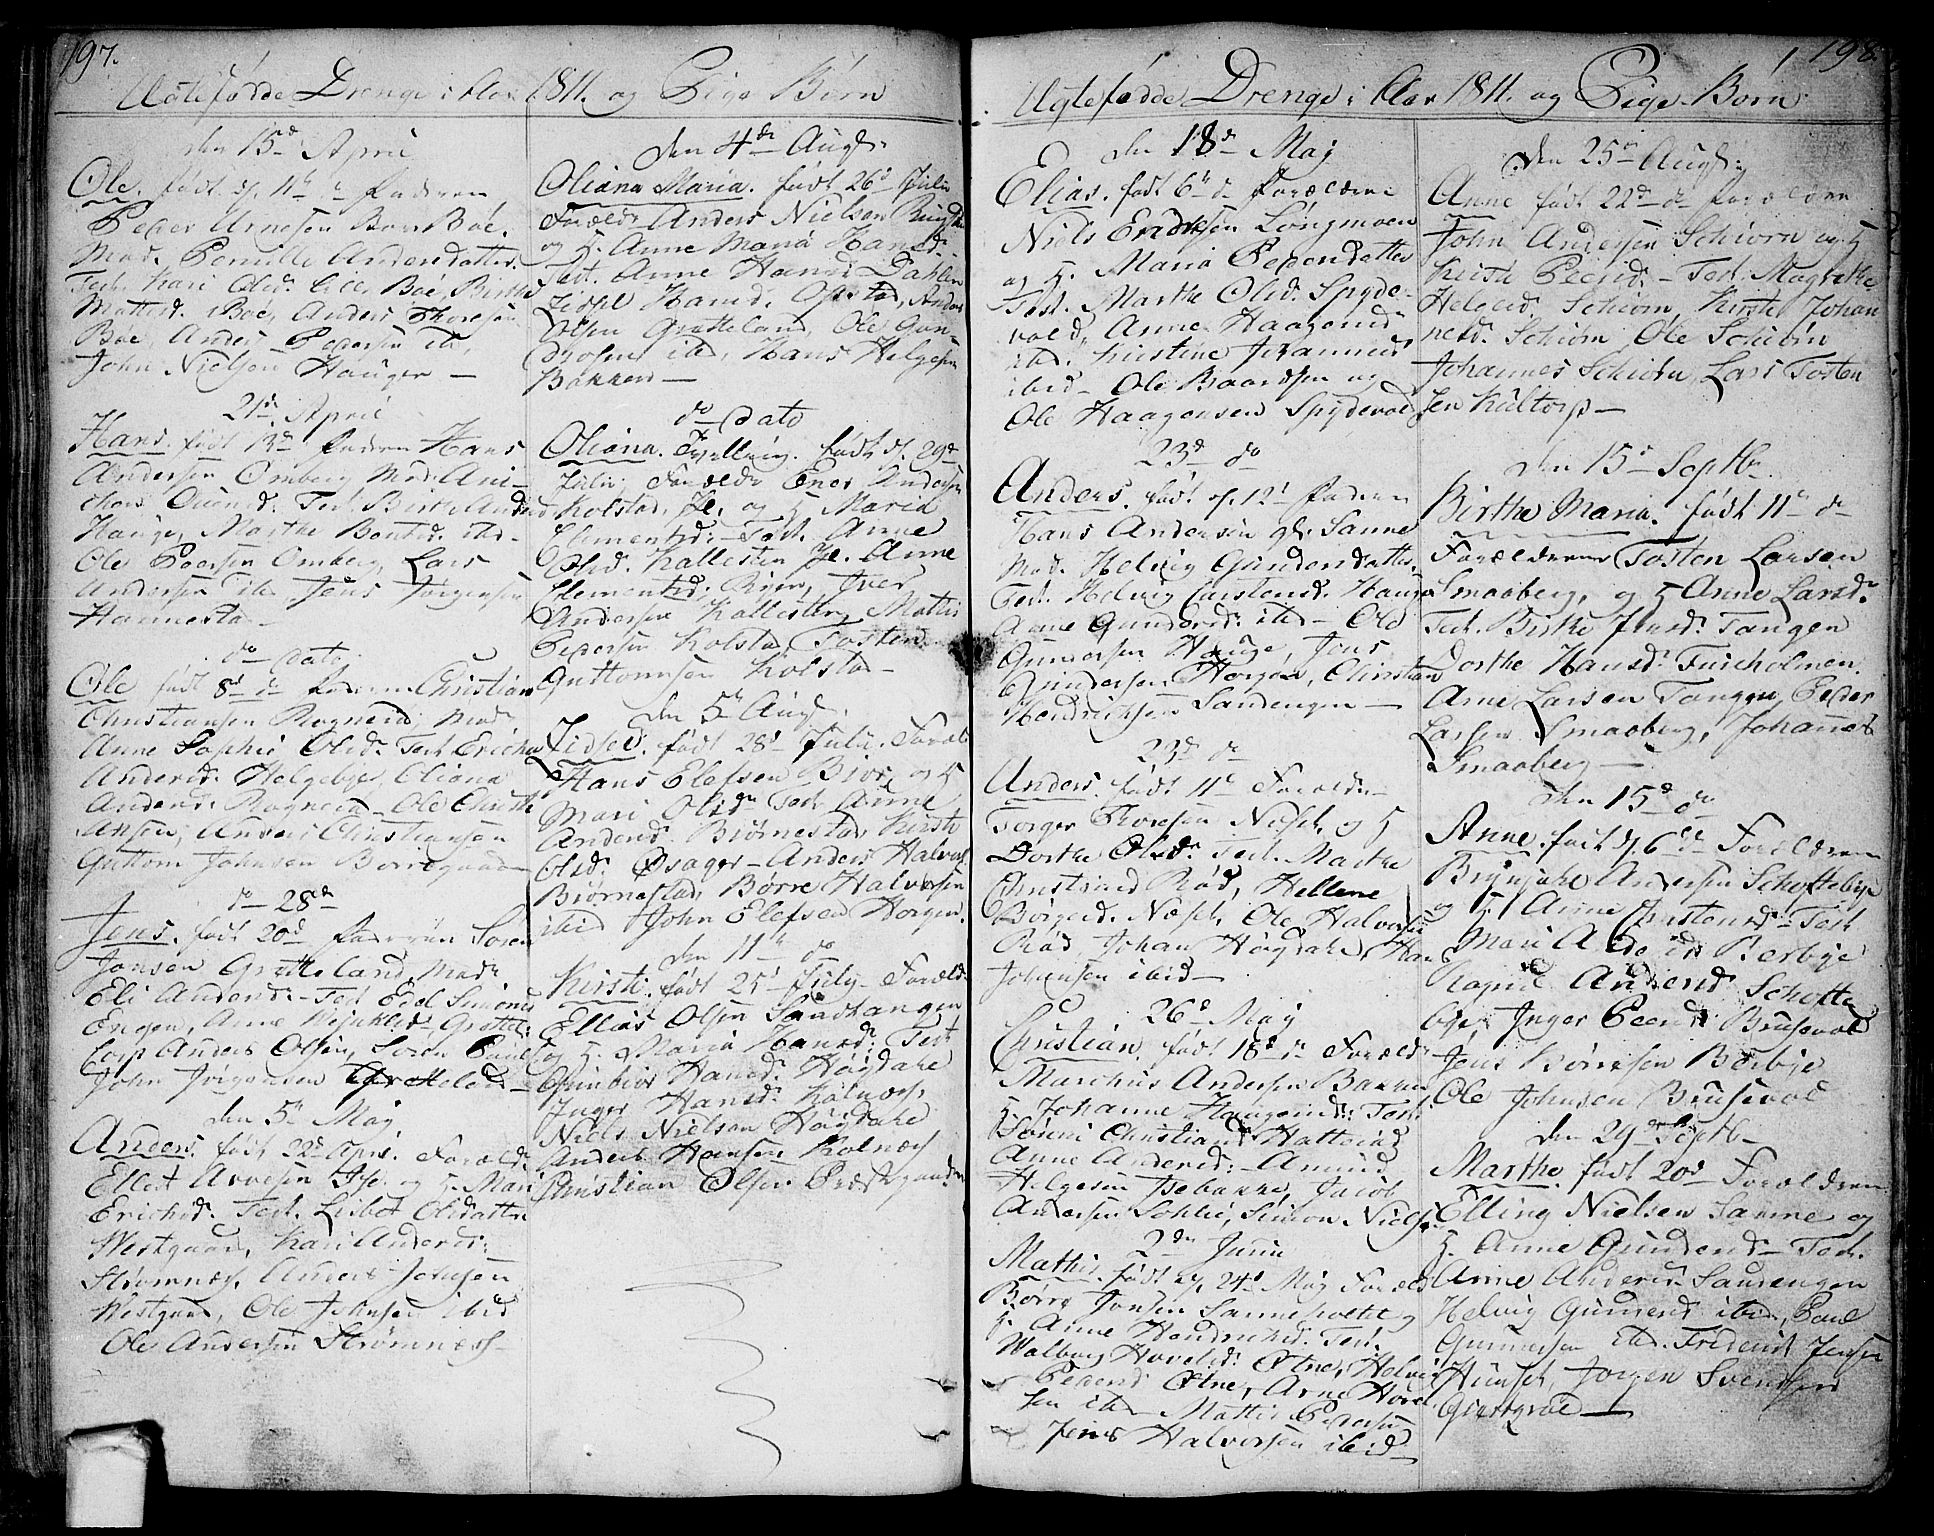 197.
Ugtefødde Drenge i Aar 1811. og Pige Børn
den 15d April
Ole. født d. 11t d Faderen
Peder Arnesen Bøe.
Mod. Pernille Andersdatter.
Test. Kari Olsd. Lille Bøe, Birthe
Mattesd. Bøe, Anders Thoresen
Bøe, Anders Pedersen ibd,
John Nielsen Hauger —
21d April
Hans. født 13d Faderen Hans
Andersen Omberg Mod. Ani-
chen Test. Birthe Andersd
Hauge, Marthe Bentsd. ibd —
Ole Peersen Omberg, Lars
Andersen ibd, Jens Jørgensen
Hannestad —
do Dato
Ole født 8d d Faderen Christian
Christiansen Rognerud Mod.
Anne Sophie Olsd. Test. Ericha
Andersd. Helgebye, Oliana
Andersd. Rognerud — Ole Christi-
Ansen, Anders Christiansen
Guttorm Johnsen Borregaard
do 28de
Jens. født 20d Faderen Soren
Jonsen Grætteland, Mod.
Eli Andersd. — Test. Edel Simonsd
Engen, Anne
Anders Olsen, Soren
John Jørgensen
den 5t Maj
Anders. født 22d Apri. Foræld.
Ellert Arvesen og H. Mari
Erichsd. Test. Lisbet Olsdatter
Westgaard, Kari Andersd.
Strømnæs. Anders Johnsen
Westgaard, Ole Johnsen ibid
Ole Andersen Strømnæss —
den 4de Augt.
Oliana Maria. født 26d Julii
Foræld. Anders Nielsen
og H. Anne Maria Hansd. —
Test. Anne Hansd Dahlen
Zidsel Hansd. Opstad, Anders
Olsen Grætteland, Ole Gun-
drosen ibd, Hans Helgesen
Bakken —
do Dato
Oliana. Tvilling. født d. 29d
Julii. Foræld. Ener Andersen
Kolstad, og H Maria
Clementsd. — Test. Anne
Olsd. Kallesten Anne
Clementsd. Iver
Andersen Kallesten, Mattis
Pedersen Kolstad, Tosten
Guttormsen Kolstad —
den 5t Augt.
Zidsel. født 28d Julii. Foræld
Hans Elefsen og H
Mari Olsd. Test. Anne
Andersd. Bjørnestad, Kirsti
Olsd. Øsager — Anders Halvors.
Bjørnestad, Børre Halvorsen
ibid John Elefsen Horgen.
den 11t do
Kirsti. født 25d July — Foræld.
Ellias Olsen Sandtangen
og H. Maria Hansd. Test
Gunbior Hansd. Høgdahl
Inger Hansd. Kolnæs,
Niels Nielsen Høgdahl
Anders Hansen Kolnæs
Christian Olsen Præstegaarden
198.
Ugtefødde Drenge i Aar 1811. og Pige-Børn
den 18d Maj
Elias. født 6t d Forældre:
Niels Erichsen Longmoen
og H. Maria Pedersdatter
Test. Marthe Olsd. Spyde-
vold, Anne Haagensd
ibd. Kirstine Johannesd
ibid — Ole Baardsen og
Ole Haagensen Spydevold
23d do
Anders. født d. 12d Faderen
Hans Andersen Sanne
Mod. Helvig Gundersdatter.
Test. Helvig Carstensd. Hauge
Anne Gundersd. ibd — Ole
Gundersen Hauge, Jens
Gundersen Horgen, Christian
Hendrichsen Sandengen —
23d do
Anders. født 11t Foræld. —
Torger Thoresen og H
Dorthe Olsd. Test. Marthe
Christensd Rød, Hellene
Børgersd. Ole Halvorsen
Rød Johan Høgdahl, Hans
Johnsen ibid —
26d Maj
Christian. født 18d d Foræld
Marchus Andersen Bakken
H. Johanne Haagensd: Test.
Søreni Christiansd
Anne Andersd: — Amund
Helgesen Jacob
Andersen Simon Niels.
2den Junii
Mathis. født d. 24d Maj Foræld
Børre Jonsen Sanneholtet og
H. Anne Hendrichsd. Test.
Walborg Hovelsd. Ørne, Helvig
Pedersd Ørne, Arne Hovel-
sen ibd — Mattis Pedersen
Jens Halvorsen ibid —
den 25de Augt.
Anne født 22d d Forældre
John Andersen Schiørn og H
Kirsti Peersd — Test. Magrethe
Helgesd. Schiørn, Kirsti Johan-
nesd. Schiørn Ole Schiørn
Johannes Schiørn, Lars Tosten-
sen Kultorp —
den 15d Septbr.
Birthe Maria. født 11t d
Forældrene Tosten Larsen
Smaaberg, og H Anne Larsd.
Test. Birthe Jensd. Tangen
Dorthe Hansd. Furuholmen
Arne Larsen Tangen, Peder
Larsen Smaaberg, Johannes
Smaaberg —
den 15d do
Anne. født d. 6de d Forældrene
Brynjahl Andersen Schottebye
og H Anne Christensd. Test
Mari Berbye
Ragnil Andersd Schotte-
bye, Inger Peersd Brusevold
Jens Børresen Berbye
Ole Johnsen Brusevold
den 29de Septb —
Marthe. født 20d Forældrene
Elling Nielsen Sanne og
H. Anne Gundersd — Test.
Anne Andersd. Sandengen
Helvig Gundersd ibid, Poul
Gunnersen ibd. Frederich Jensen
Jørgen Svendsen